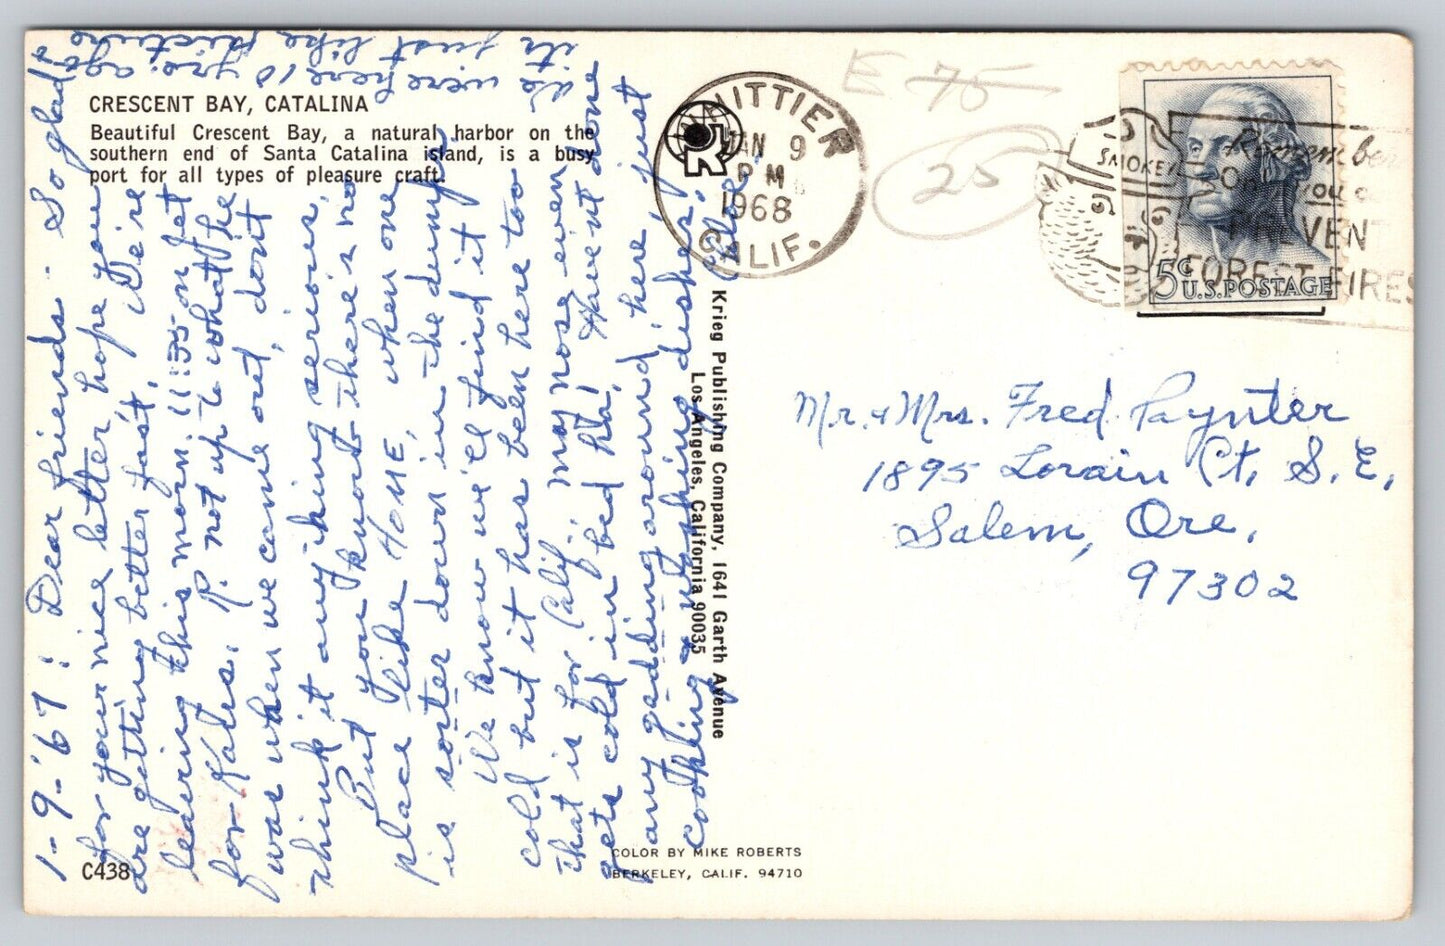 CRESCENT BAY, CATALINA
Beautiful Crescent Bay, a natural harbor on the
southern end of Santa Catalina island, is a busy
port for all types of pleasure craft.
1-9-'67: Dear friends - So glad
for your nice letter, hope you
are getting better fast. We're
leaving this morn. 11:35 on Jet
for Kahs. R. not up to what he
was when we came out, don't
think it anything serious.
But you know there's no
place like HOME, when one
is sorter down in the dumps
We know we'll find it
cold but it has been here too
that is for Calif. my nose even
gets cold in bed ha! Haven't done
any gadding around here, just
cooking & washing dishes,
we were here 10 yrs. ago &
its just like picture
C438
COLOR BY MIKE ROBERTS
BERKELEY, CALIF. 94710
Krieg Publishing Company, 1641 Garth Avenue
Los Angeles, California 90035
K
WHITTIER
JAN 9
PM
1968
CALIF.
E 75
25
SMOKEY
Remember
Only you can
PREVENT
FOREST FIRES
5¢
U.S. POSTAGE
Mr. & Mrs. Fred Paynter
1895 Lorain Ct. S.E.
Salem, Ore.
97302